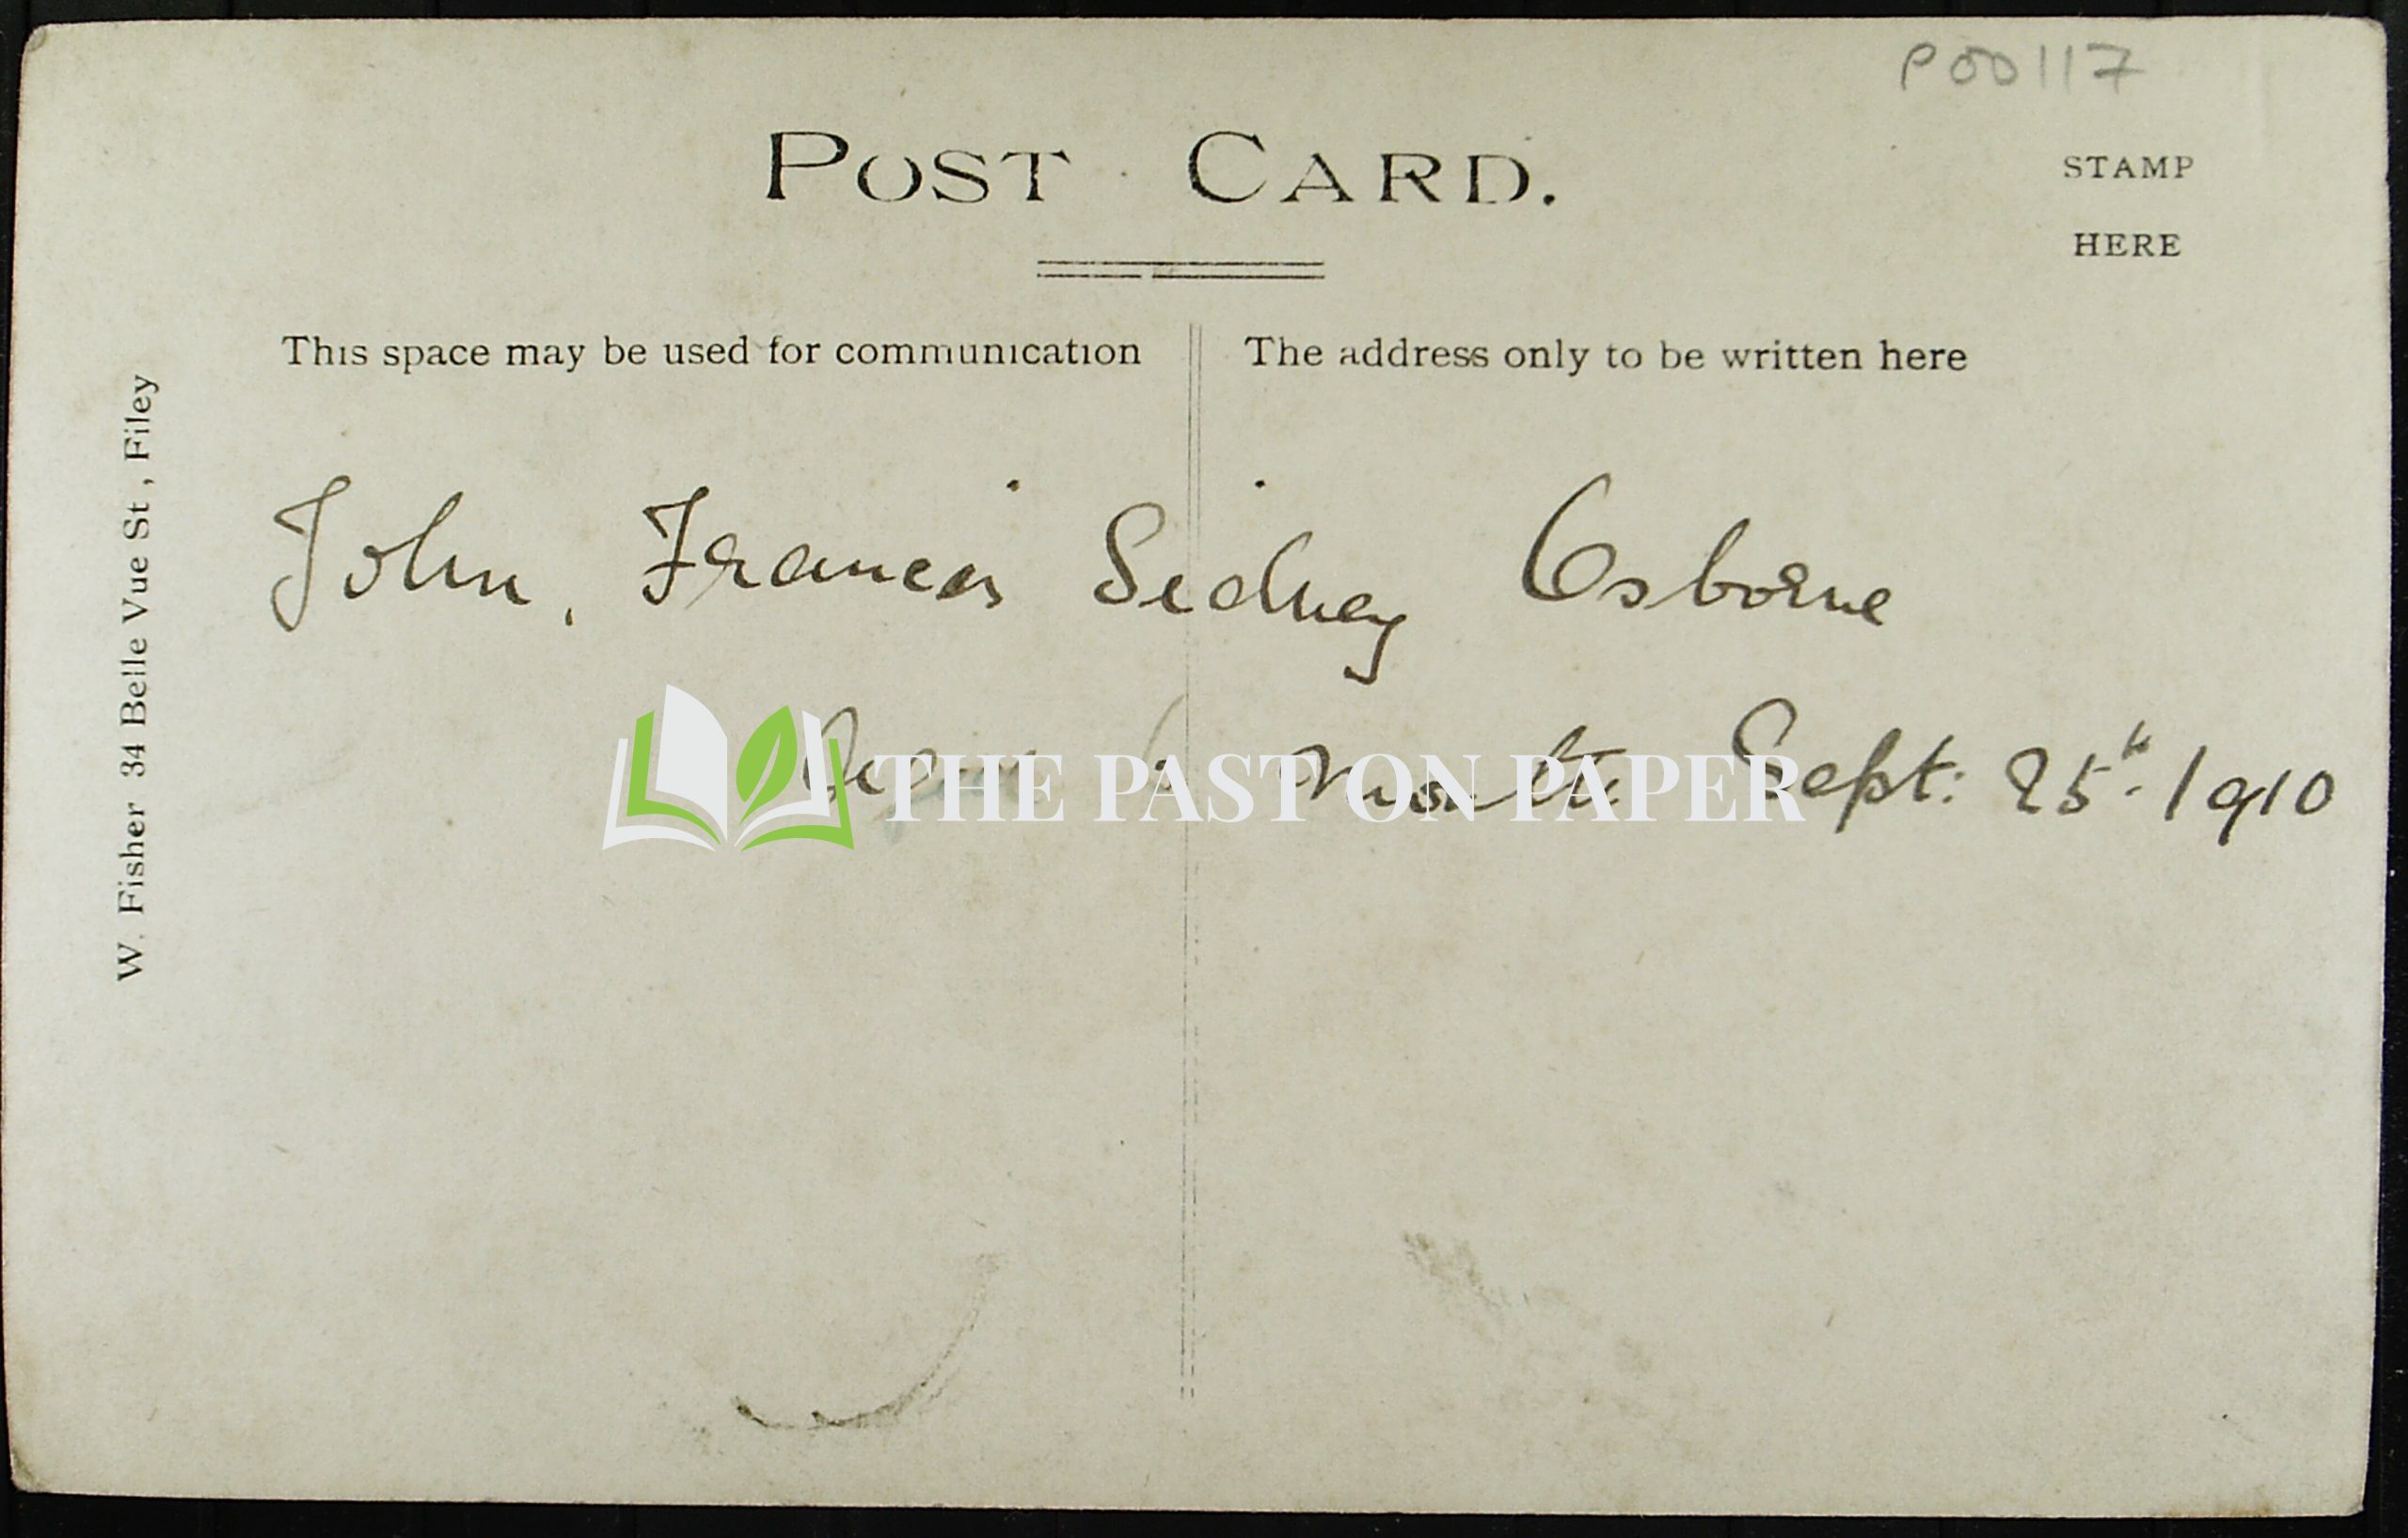 P00117
POST CARD.
STAMP
HERE
This space may be used for communication
The address only to be written here
W. Fisher 34 Belle Vue St, Filey
John, Francis Sidney Osborne
6 months Sept: 25th 1910
THE PAST ON PAPER